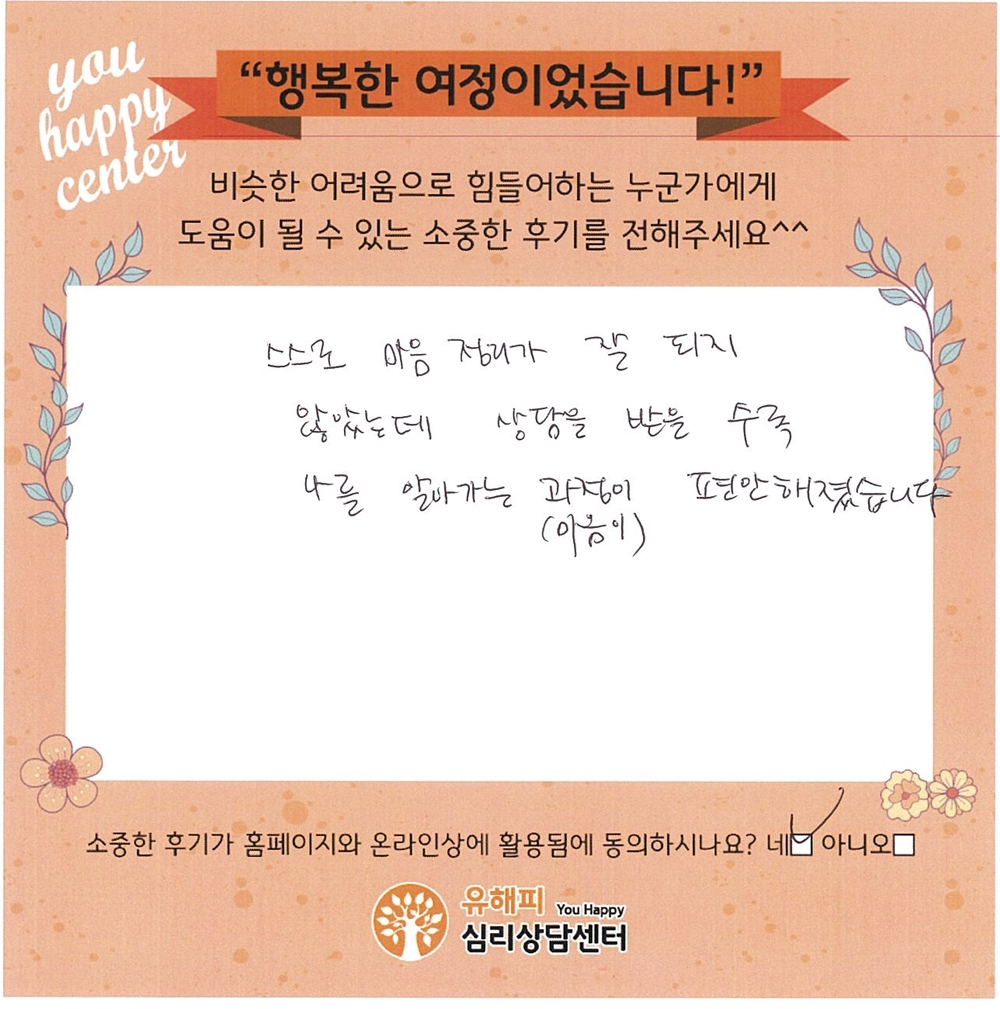 you
happy
center
“행복한 여정이었습니다!”
비슷한 어려움으로 힘들어하는 누군가에게
도움이 될 수 있는 소중한 후기를 전해주세요^^
스스로 마음 정리가 잘 되지
않았는데 상담을 받을 수록
나를 알아가는 과정이 편안해졌습니다
(마음이)
소중한 후기가 홈페이지와 온라인상에 활용됨에 동의하시나요? 네 아니오
유해피 You Happy
심리상담센터